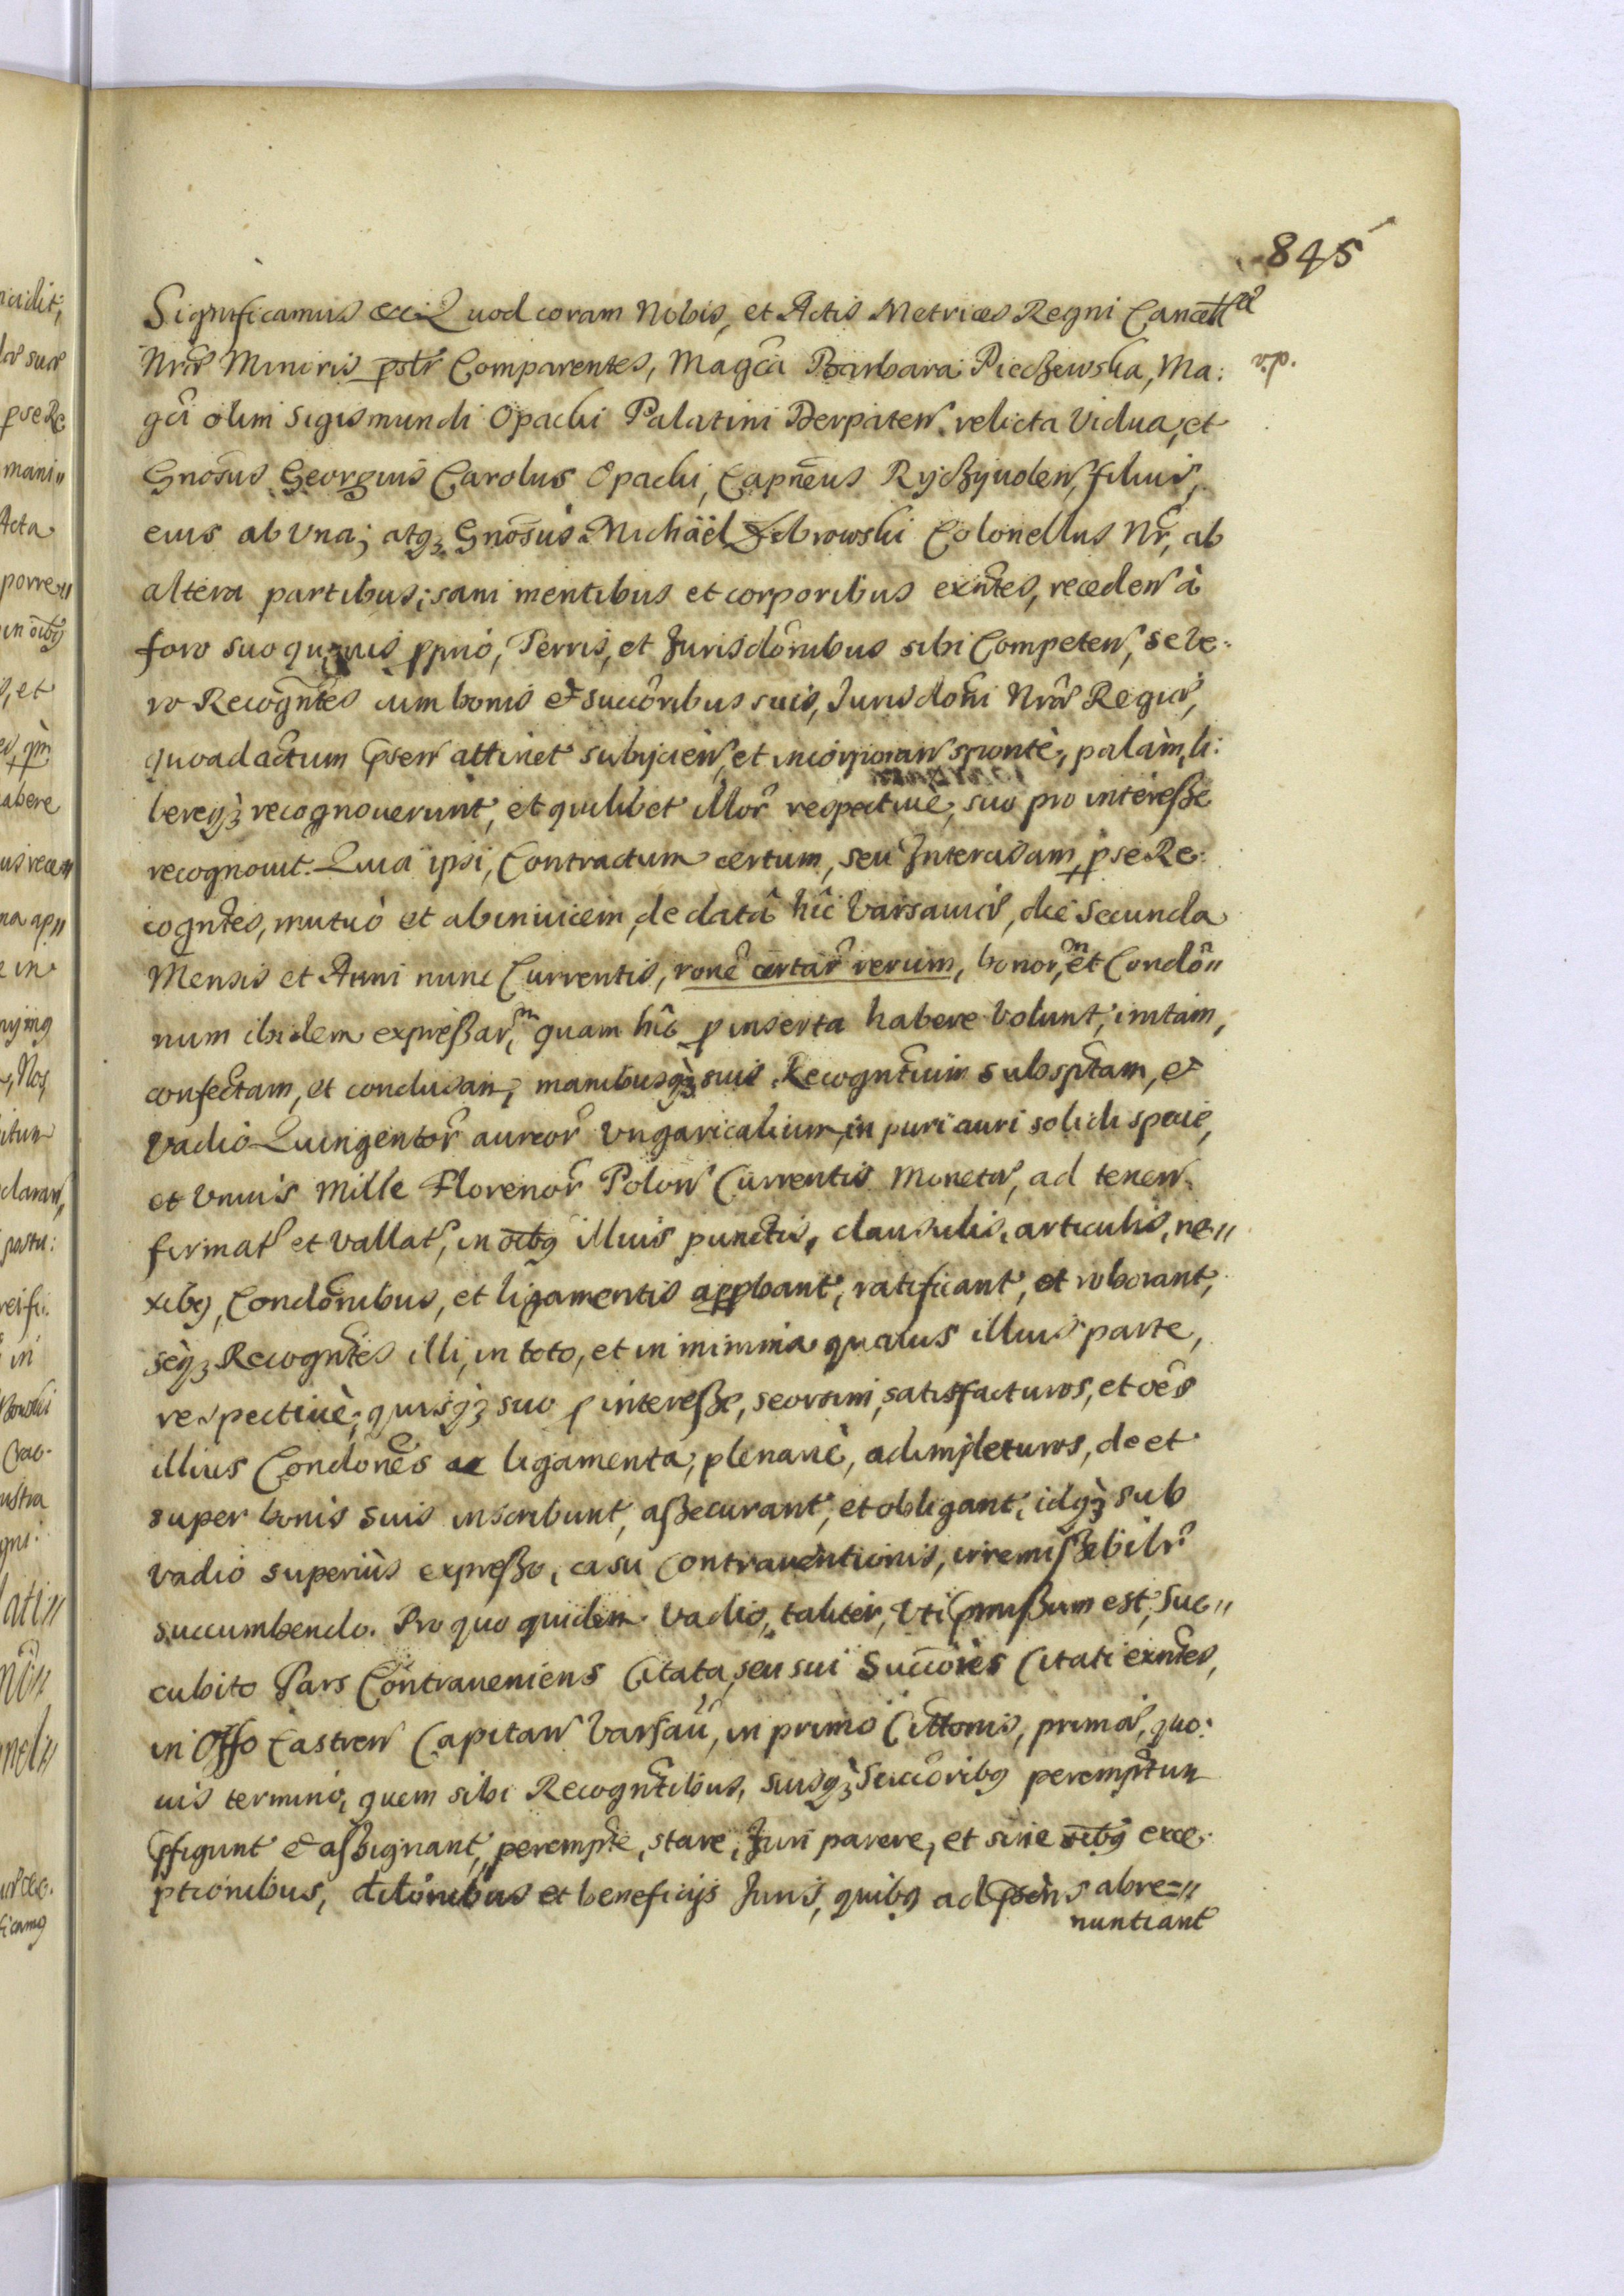 845
Significamus etc. Quod coram Nobis, et Actis Metrices Regni Cancell͠æ
Nræ̃ Minoris pslr̃ Comparentes, Magcã Barbara Pieczewska, Ma:
gci͠ olim Sigismundi Opacki Palatini Derpaten̄. relicta Vidua, et
Gnosũs Georgius Carolus Opacki, Capnẽus Rÿczÿuolen̄, filius,
eius ab Vna; atqꝫ Gnosũs Michäel Zebrowski Colonellus Nr̃, ab
altera partibus; sani mentibus et corporibus exñtes, receden̄ à
foro suo quouis pprio, Terris, et Jurisdonĩbus sibi Competen̄, se ve:
ro Recogntẽs cum bonis et succorĩbus suis, Jurisdonĩ Nræ̃ Regiæ,
quoad actum pn̄sen̄ attinet subijcien̄, et incorporan̄ spontè, palàm, li:
bereqꝫ recognouerunt, et quilibet illor̃ respectiuè, suo pro interesse
recognouit. Quia ipsi, Contractum certum, seu Intercisam, p se Re:
cogntẽs, mutuò et abinuicem, de datâ hic̃ Varsauiæ, die Secunda
Mensis et Anni nunc Currentis, ronẽ certar̃ rerum, bonor̃m, et Condõ„
num ibidem expressar̃m, quam hic̃ p inserta habere volunt, initam,
confectam, et conclusam, manibusqꝫ suis Recogntĩum subsptãm, et
vadio Quingentor̃ aureor̃ Vngaricalium, in puri auri solidi specie,
et Vnius Mille Florenor̃ Polon̄ Currentis Monetæ, ad tenen̄.
firmat̃ et vallat̃, in oĩbꝫ illius punctis, clausulis, articulis, ne„
xibꝫ, Condonĩbus, et ligamentis appbant, ratificant, et roborant,
seqꝫ Recogntẽs illi, in toto, et in minima quauis illius parte,
respectiuè, quisqꝫ suo p interesse, seorsim, satisfacturos, et oẽs
illius Condonẽs ac ligamenta, plenariè, adimpleturos, de et
super bonis suis inscribunt, assecurant, et obligant, idqꝫ sub
vadio superiùs expresso, casu Contrauentionis, irremissibilr̃
succumbendo. Pro quo quidem Vadio, taliter, Vti pmissum est, Suc„
cubito Pars Contraueniens Citata, seu sui Succorẽs Citati exntẽs,
in Offo Castren̄ Capitan̄ Varsau̅, in primo Cittonis, primæ, quo:
uis termino, quem sibi Recogntĩbus, suisqꝫ Succorĩbꝫ peremptum
pfigunt et assignant, perempte, stare, Juri parere, et sine oĩbꝫ exce:
ptionibus, dilonĩbus et beneficijs Juris, quibꝫ ad psẽns abre=„
nuntiant
v.p.